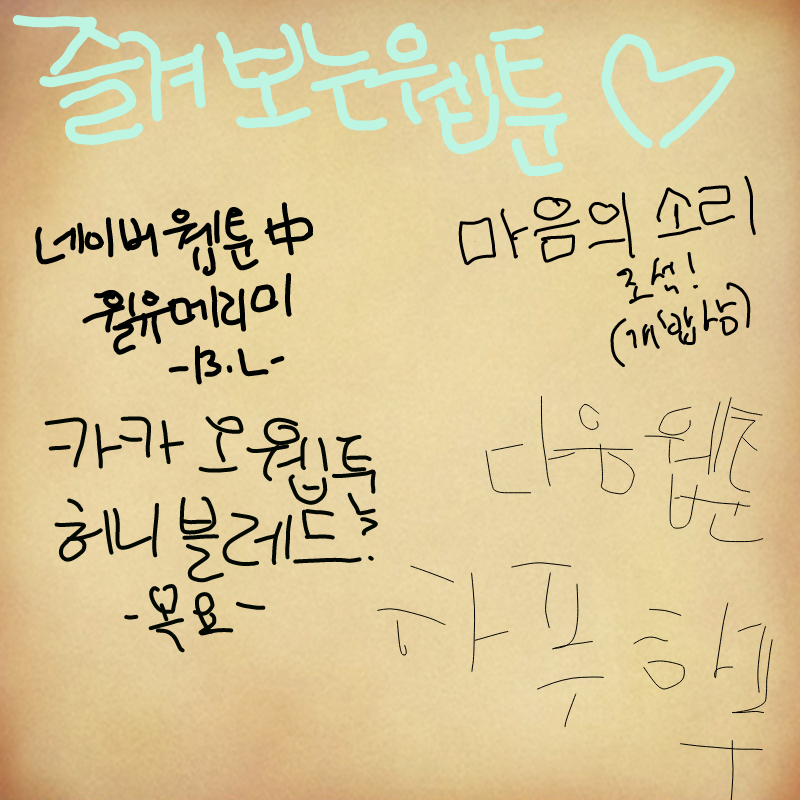 즐겨보는웹툰♡
네이버웹툰中
윌유메리미
-B.L-
마음의소리
로석!
(개랍상)
카카오웹툰
허니블레드
-목요-
다음웹툰